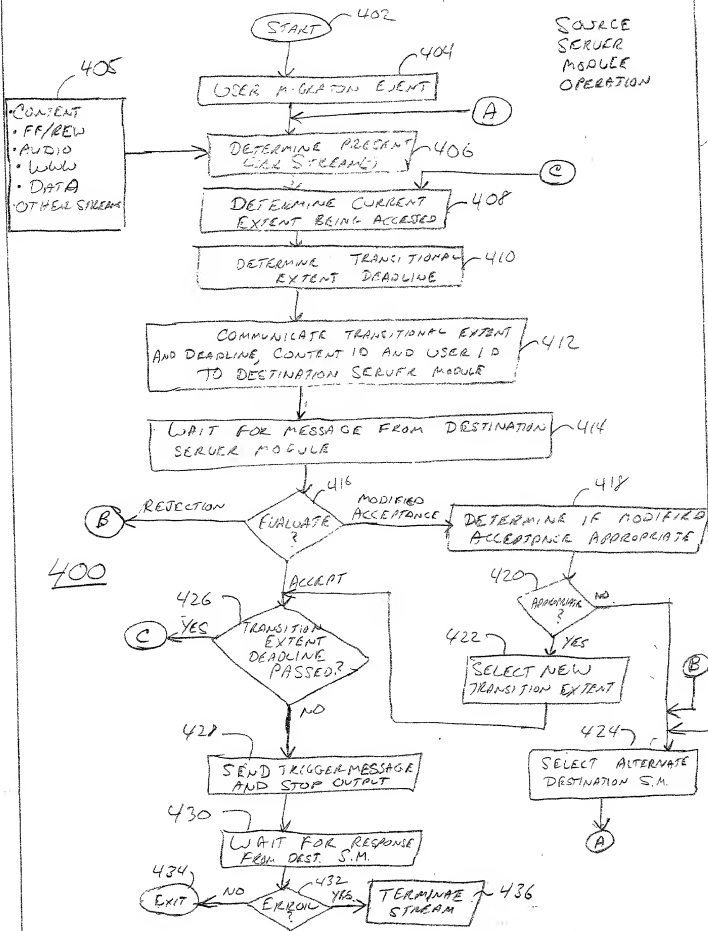 START
402
SOURCE
SERVER
MODULE
OPERATION
404
USER MIGRATON EVENT
405
•CONTENT
• FF/REW
•AUDIO
• WWW
• DATA
•OTHER STREAMS
A
DETERMINE PRESENT
USER STREAM(S)
406
C
DETERMINE CURRENT
EXTENT BEING ACCESSED
408
DETERMINE TRANSITIONAL
EXTENT DEADLINE
410
COMMUNICATE TRANSITIONAL EXTENT
AND DEADLINE, CONTENT ID AND USER ID
TO DESTINATION SERVER MODULE
412
WAIT FOR MESSAGE FROM DESTINATION
SERVER MODULE
414
416
B
REJECTION
EVALUATE
?
MODIFIED
ACCEPTANCE
418
DETERMINE IF MODIFIED
ACCEPTANCE APPROPRIATE
400
ACCEPT
420
APPROPRIATE
?
NO
YES
426
C
YES
TRANSITION
EXTENT
DEADLINE
PASSED?
422
SELECT NEW
TRANSITION EXTENT
B
NO
424
SELECT ALTERNATE
DESTINATION S.M.
A
428
SEND TRIGGER MESSAGE
AND STOP OUTPUT
430
WAIT FOR RESPONSE
FROM DEST. S.M.
434
EXIT
NO
432
ERROR
?
YES
TERMINAE
STREAM
436